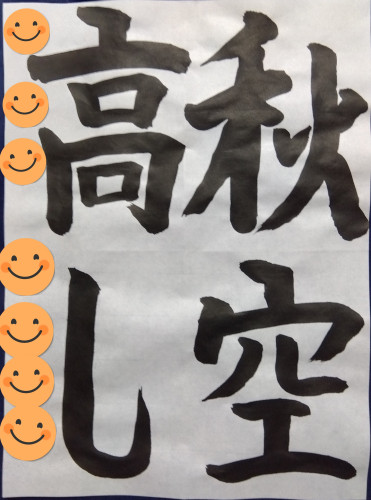 秋空
高し